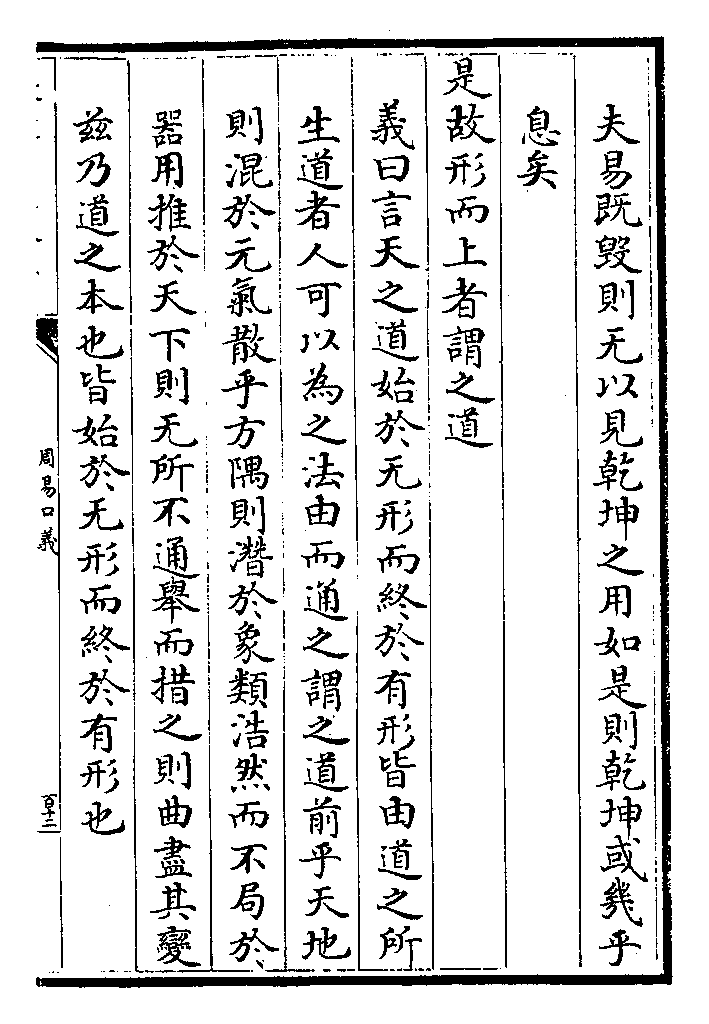 夫易既毁則无以見乾坤之用如是則乾坤或幾乎
息矣
是故形而上者謂之道
義曰言天之道始於无形而終於有形皆由道之所
生道者人可以為之法由而通之謂之道前乎天地
則混於元氣散乎方隅則潛於象類浩然而不局於
器用推於天下則无所不通舉而措之則曲盡其變
兹乃道之本也皆始於无形而終於有形也
周易口義
百十二